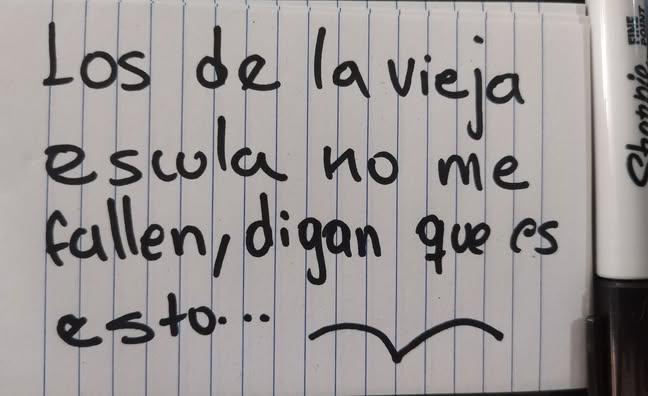 Los de la vieja
escula no me
fallen, digan que es
esto...
Sharpie
FINE
POINT